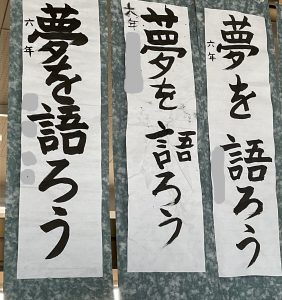 夢を語ろう
六年
夢を語ろう
六年
夢を語ろう
六年